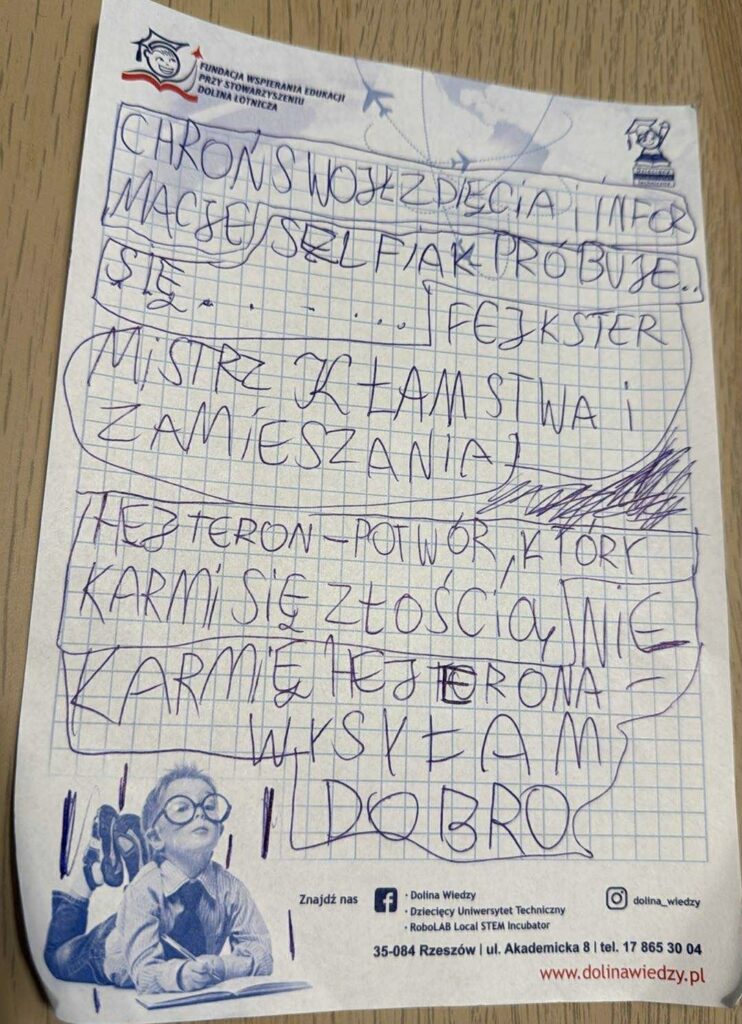 FUNDACJA WSPIERANIA EDUKACJI
PRZY STOWARZYSZENIU
DOLINA LOTNICZA
CHROŃ SWOJE ZDIĘCIA i INFOR
MACJE SĘLFIAK PRÓBUJE..
SIĘ. . . - ...
FEJKSTER
MiSTRZ KŁAMSTWA i
ZAMiESZANiA
HEJTERON – POTWÓR, KTÓRY
KARMi SIĘ ZŁOŚCiĄ NiE
KARMiĘ HEJTERONA –
WYSYŁAM
DOBRO
Znajdź nas
· Dolina Wiedzy
· Dziecięcy Uniwersytet Techniczny
· RoboLAB Local STEM Incubator
dolina_wiedzy
35-084 Rzeszów | ul. Akademicka 8 | tel. 17 865 30 04
www.dolinawiedzy.pl